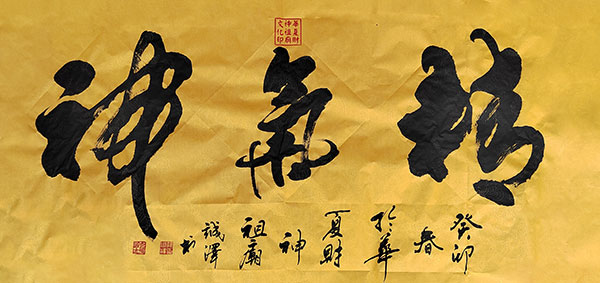 精氣神
華夏財
神祖廟
文化印
癸卯
春
於華
夏財
神
祖廟
誠澤